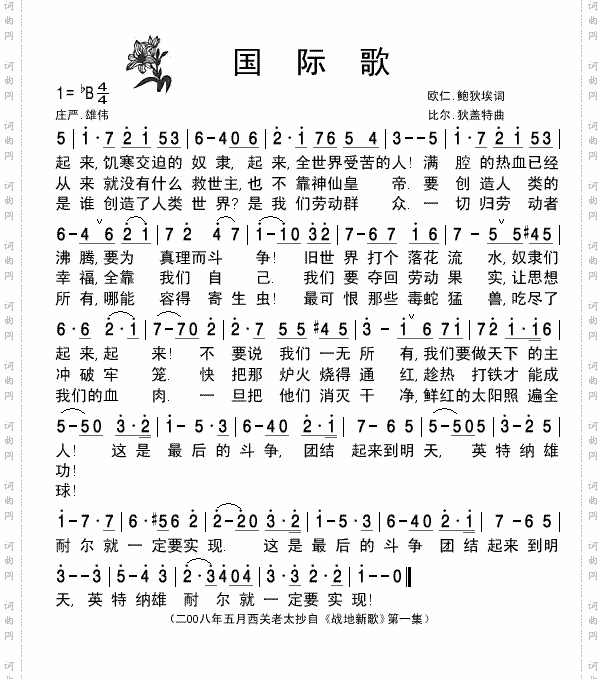 国际歌
1= ♭B 4/4
欧仁.鲍狄埃词
庄严.雄伟
比尔.狄盖特曲
5 | i · 7 2 i 53 | 6-40 6 | 2 · i 76 5 4 | 3--5 | i · 7 2 i 53 |
起 来, 饥寒交迫的 奴 隶, 起 来, 全世界受苦的人! 满 腔 的热血已经
从 来 就没有什么 救世主, 也 不 靠神仙皇 帝. 要 创造人 类的
是谁 创造了人类 世 界? 是我 们劳动群 众. 一 切归劳 动者
6-4 6 2 i | 7 2 4 7 | i-i0 32 | 7-67 i6 | 7 - 5 5#45 |
沸 腾, 要为 真理而斗 争! 旧世界 打个 落花流 水, 奴隶们
幸 福, 全靠 我们 自 己. 我们 要 夺回 劳动果 实, 让思想
所 有, 哪能 容得 寄生 虫! 最可 恨 那些 毒蛇猛 兽, 吃尽了
6 · 6 2 · i | 7-70 2 | 2 · 7 5 5 #4 5 | 3 - i 6 7i | 72 i · i6 |
起来, 起 来! 不 要说 我们 一无 所 有, 我们 要做天下 的主
冲 破牢 笼. 快 把那 炉火 烧得 通 红, 趁热 打铁才 能成
我们的血 肉. 一 旦把 他们 消灭 干 净, 鲜红的太阳照 遍全
5-50 3 · 2 | i - 5 · 3 | 6-40 2 · i | 7 · 6 5 6 | 5-505 | 3--3 |
人! 这 是 最 后的 斗 争, 团结 起来到明 天, 英 特纳雄
功!
球!
i-7 · 7 | 6 · #56 2 | 2-20 3 · 2 | i-5 · 3 | 6-40 2 · i | 7 -6 5 |
耐 尔就 一 定要实 现. 这 是 最 后 的 斗争 团 结 起来到明
3--3 | 5-4 3 | 2 · 3404 | 3 · 3 2 · 2 | i--0 ||
天, 英 特 纳雄 耐 尔就一定要实现!
(二00八年五月西关老太抄自《战地新歌》第一集)
词曲网